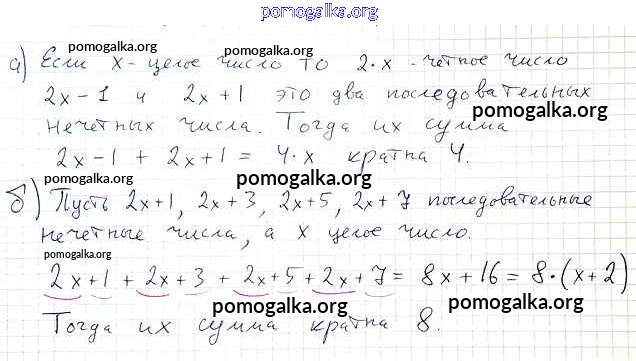 pomogalka.org
pomogalka.org pomogalka.org
а) Если x - целое число то 2·x - четное число
2x-1 и 2x+1 это два последовательных
pomogalka.org
нечетных числа. Тогда их сумма
2x-1 + 2x+1 = 4·x кратна 4.
pomogalka.org pomogalka.org
б) Пусть 2x+1, 2x+3, 2x+5, 2x+7 последовательные
нечетные числа, а x целое число.
pomogalka.org
2x+1 + 2x+3 + 2x+5 + 2x+7 = 8x+16 = 8·(x+2)
pomogalka.org pomogalka.org
Тогда их сумма кратна 8.